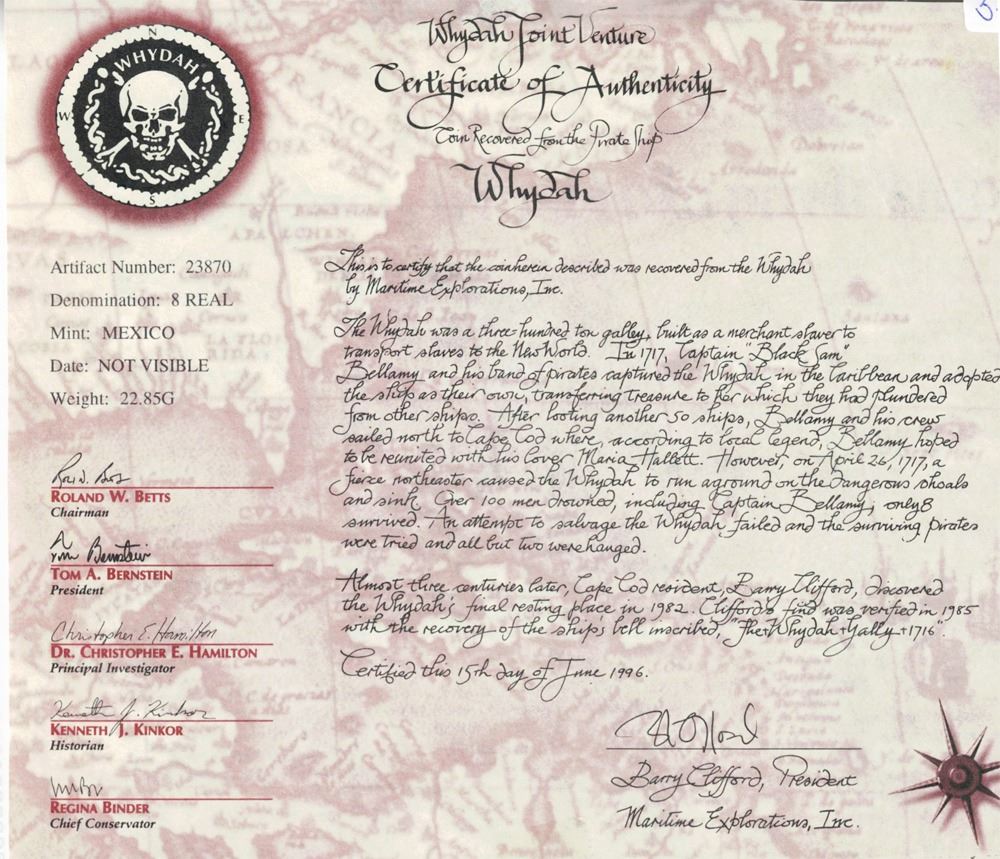 N
WHYDAH
W
E
S
Whydah Joint Venture
Certificate of Authenticity
Coin Recovered from the Pirate Ship
Whydah
Artifact Number: 23870
Denomination: 8 REAL
Mint: MEXICO
Date: NOT VISIBLE
Weight: 22.85G
This is to certify that the coin herein described was recovered from the Whydah
by Maritime Explorations, Inc.
The Whydah was a three-hundred ton galley, built as a merchant slaver to
transport slaves to the New World. In 1717, Captain "Black Sam"
Bellamy and his band of pirates captured the Whydah in the Caribbean and adopted
the ship as their own, transferring treasure to her which they had plundered
from other ships. After looting another 50 ships, Bellamy and his crew
sailed north to Cape Cod where, according to local legend, Bellamy hoped
to be reunited with his lover Maria Hallett. However, on April 26, 1717, a
fierce northeaster caused the Whydah to run aground on the dangerous shoals
and sink. Over 100 men drowned, including Captain Bellamy; only 8
survived. An attempt to salvage the Whydah failed and the surviving pirates
were tried and all but two were hanged.
Almost three centuries later, Cape Cod resident, Barry Clifford, discovered
the Whydah's final resting place in 1982. Clifford's find was verified in 1985
with the recovery of the ship's bell inscribed, "The+Whydah+Gally+1716".
Certified this 15th day of June 1996.
ROLAND W. BETTS
Chairman
TOM A. BERNSTEIN
President
Christopher E. Hamilton
DR. CHRISTOPHER E. HAMILTON
Principal Investigator
Kenneth J. Kinkor
KENNETH J. KINKOR
Historian
REGINA BINDER
Chief Conservator
Barry Clifford, President
Maritime Explorations, Inc.